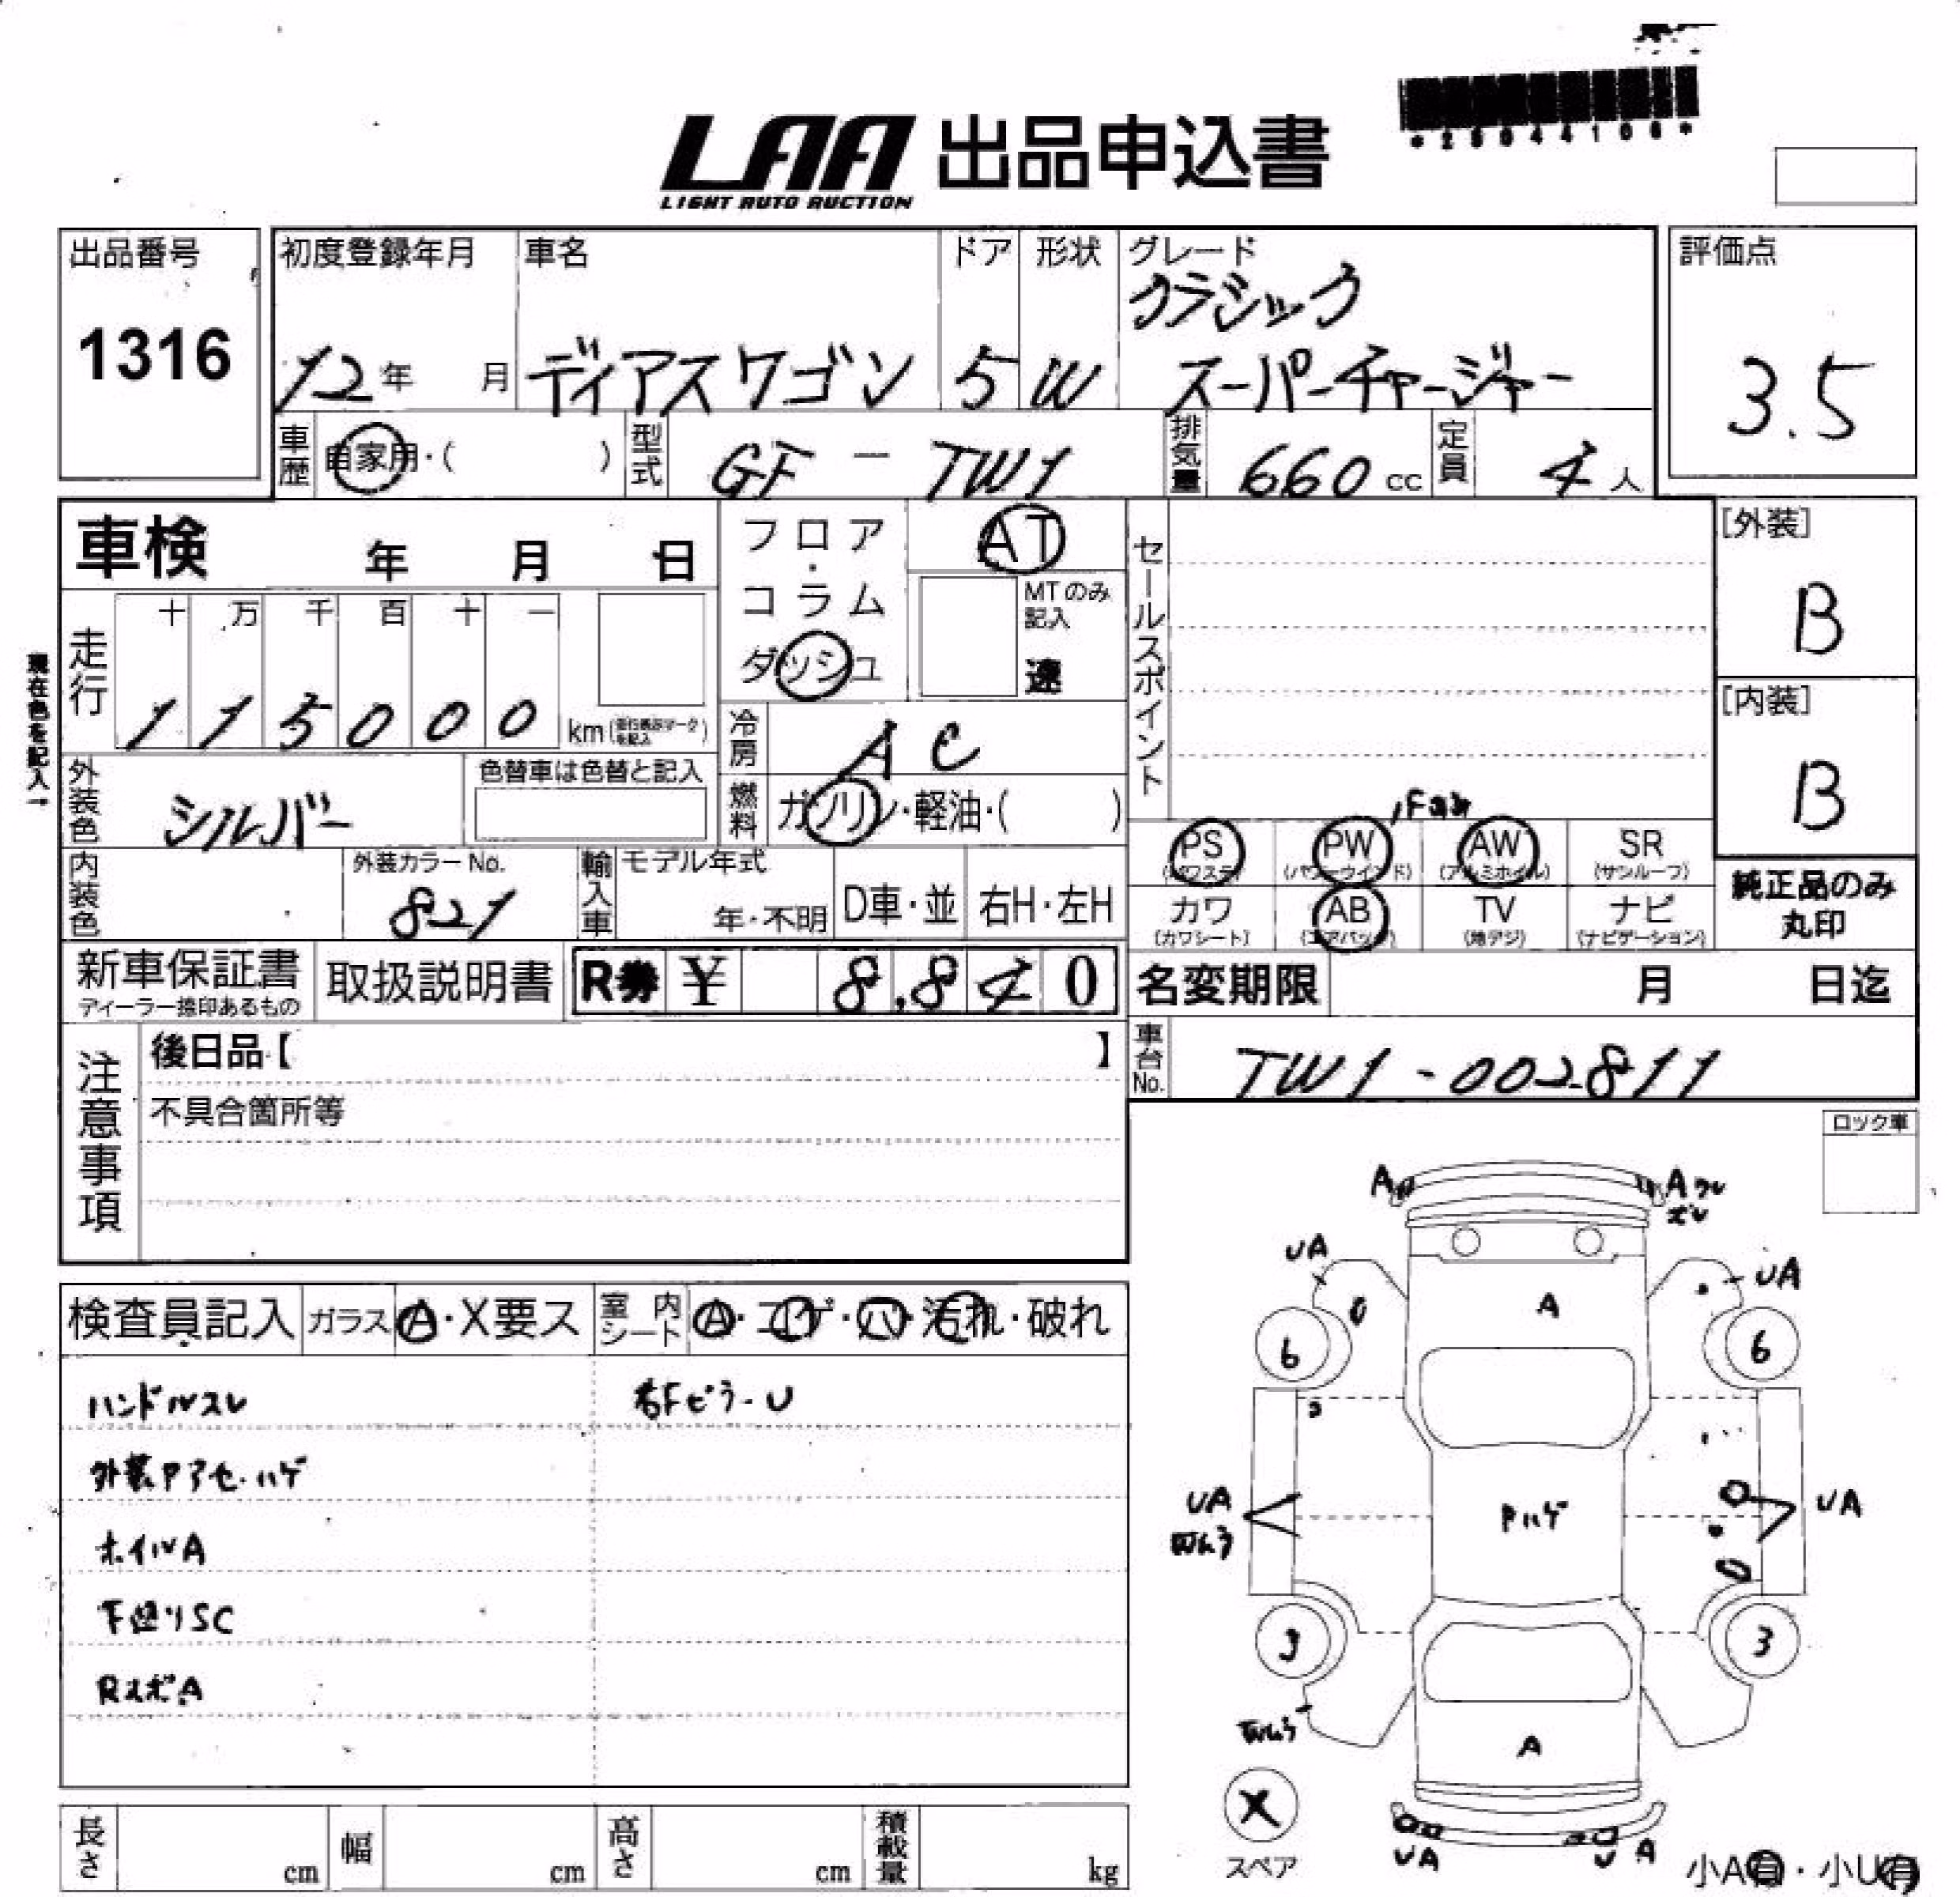 LAA 出品申込書
LIGHT AUTO AUCTION
*25044106*
出品番号
1316
初度登録年月
12年 月
車名
ディアスワゴン
ドア
5
形状
W
グレード
クラシック
スーパーチャージャー
評価点
3.5
車歴 自家用・( )
型式 GF - TW1
排気量 660 cc
定員 4 人
車検 年 月 日
フロア・コラム
ダッシュ
AT
MTのみ記入
速
セールスポイント
[外装]
B
[内装]
B
現在色を記入→
走行
十 万 千 百 十 一
1 1 5 0 0 0 km
冷房 AC
外装色 シルバー
色替車は色替と記入
燃料 ガソリン・軽油・( )
内装色
外装カラーNo.
821
輸入車
モデル年式
年・不明
D車・並
右H・左H
PS (パワステ)
PW (パワーウインド)
AW (アルミホイル)
SR (サンルーフ)
カワ (カワシート)
AB (エアバッグ)
TV (地デジ)
ナビ (ナビゲーション)
純正品のみ
丸印
新車保証書
ディーラー捺印あるもの
取扱説明書
R券 ¥ 8,840
名変期限 月 日迄
車台No. TW1-002811
注意事項
後日品【 】
不具合箇所等
ロック車
検査員記入
ガラス A・X要ス
室内シート A・コゲ・穴・汚れ・破れ
ハンドルスレ
右FピラーU
外装Pアセ・ハゲ
ホイルA
下廻りSC
RスポA
A
A
UA
UA
A
6
6
UA
Pハゲ
UA
3
3
A
X
スペア
UA
U A
小A有・小U有
長さ cm
幅 cm
高さ cm
積載量 kg